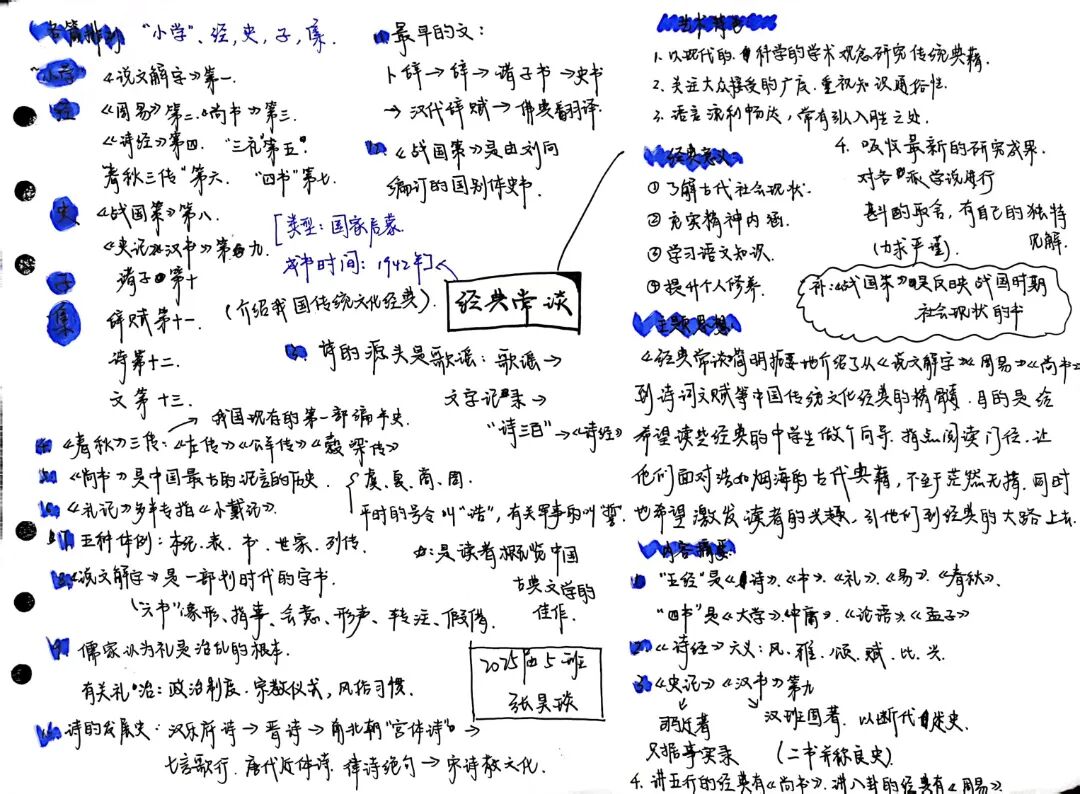 各篇排列 "小学"、经,史,子,集
"小学" 《说文解字》第一.
经 《周易》第二.《尚书》第三.
《诗经》第四. "三礼"第五.
春秋三传"第六. "四书"第七.
史 《战国策》第八.
《史记》《汉书》第九
子 诸子第十
集 辞赋第十一.
诗第十二.
文第十三.
最早的文:
卜辞→辞→诸子书→史书
→汉代辞赋→佛典翻译.
《战国策》是由刘向
编订的国别体史书.
[类型:国家启蒙.
成书时间:1942年]
(介绍我国传统文化经典).
经典常谈
3. 诗的源头是歌谣:歌谣→
文字记录→
"诗三百"→《诗经》
→我国现存的第一部编年史.
《春秋》三传:《左传》《公羊传》《榖梁传》
《尚书》是中国最古的记言的历史. 虞、夏、商、周.
平时的号令叫"诰",有关军事的叫"誓".
《礼记》多半专指《小戴记》.
五种体例:本纪、表、书、世家、列传.
是读者概览中国
古典文学的
佳作.
《说文解字》是一部划时代的字书.
"六书"象形、指事、会意、形声、转注、假借.
9. 儒家认为礼是治乱的根本.
有关礼治:政治制度、宗教仪式,风俗习惯.
2025届5班
张昊琰
诗的发展史:汉乐府诗→晋诗→南北朝"宫体诗"→
七言歌行.唐代近体诗.律诗绝句→宋诗散文化.
艺术特色
1. 以现代的.科学的学术观念研究传统典籍.
2. 关注大众接受的广度.重视知识通俗性.
3. 语言流利畅达,常有引人入胜之处.
4. 吸收最新的研究成果.
对各派学说进行
斟酌取舍,有自己的独特
见解.
(力求严谨).
经典意义
①了解古代社会现状.
②充实精神内涵.
③学习语文知识.
④提升个人修养.
补:《战国策》是反映战国时期
社会现状的书
主题思想:
《经典常谈》简明扼要地介绍了从《说文解字》《周易》《尚书》
到诗词文赋等中国传统文化经典的精髓.目的是给
希望读些经典的中学生做个向导.指点阅读门径.让
他们面对浩如烟海的古代典籍,不至于茫然无措.同时
也希望激发读者的兴趣.引他们到经典的大路上去.
内容摘要:
1. "五经"是《诗》、《书》、《礼》、《易》、《春秋》.
"四书"是《大学》、《中庸》、《论语》、《孟子》
2. 《诗经》六义:风、雅、颂、赋、比、兴.
3 《史记》《汉书》第九
司迁著 汉班固著.以断代史.
只据事实录 (二书并称良史).
4. 讲五行的经典有《尚书》.讲八卦的经典有《周易》